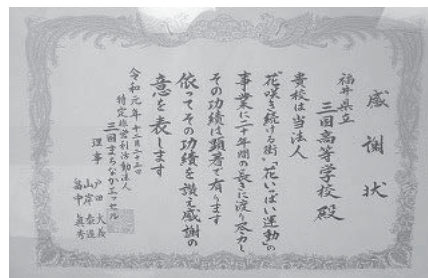 感謝状
福井県立
三国高等学校殿
貴校は当法人
「花咲き続ける街」「花いっぱい運動」の
事業に二十年間の長きに渡り尽力し
その功績は顕著で有ります
依ってその功績を讃え感謝の
意を表します
令和元年十二月二十二日
特定非営利活動法人
三国まちなかエッセル
理事
戸田大義
山岸
畠中眞秀